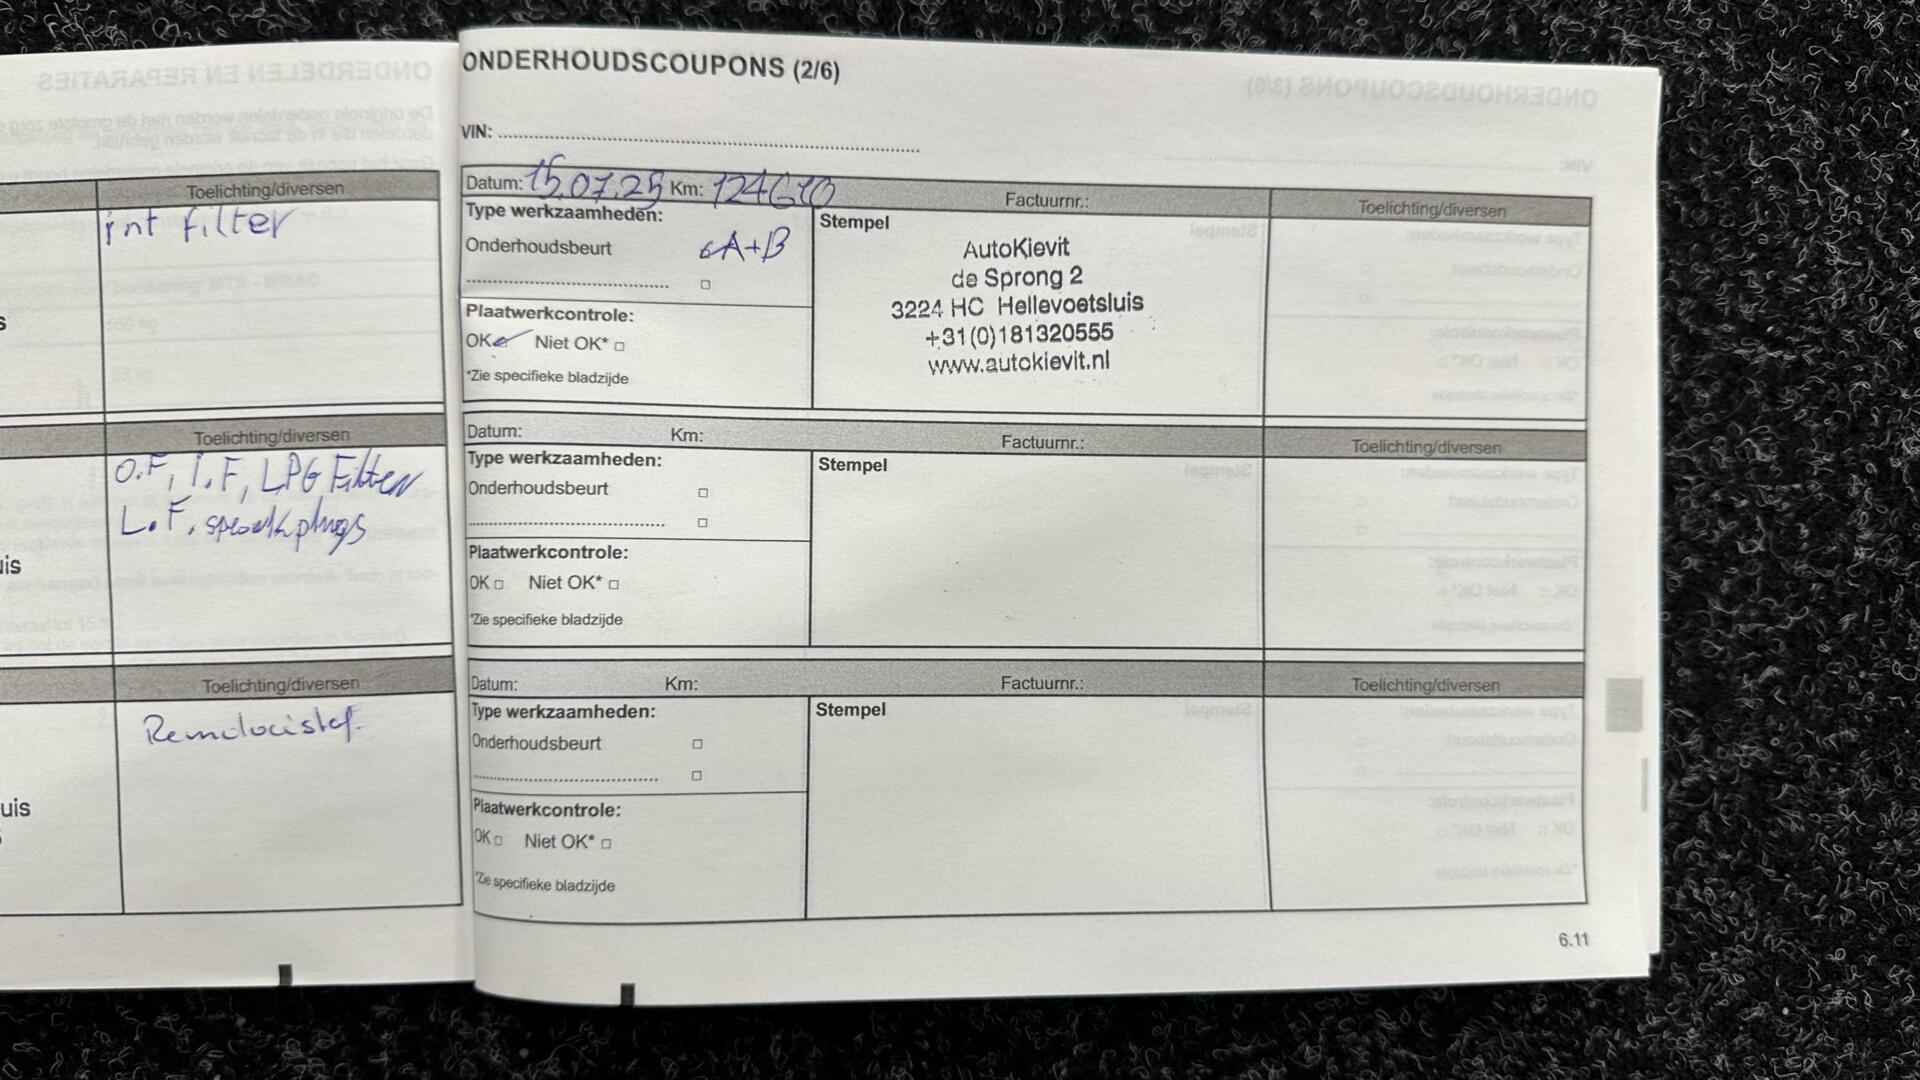 Toelichting/diversen
int filter
Toelichting/diversen
O.F, I.F, LPG Filter
L.F, spark plugs
uis
Toelichting/diversen
uis
ONDERHOUDSCOUPONS (2/6)
VIN:
Datum: 15.07.25 Km: 124610 Factuurnr.: Toelichting/diversen
Type werkzaamheden:
Onderhoudsbeurt A+B
Plaatwerkcontrole:
OK Niet OK*
*Zie specifieke bladzijde
Stempel
AutoKievit
de Sprong 2
3224 HC Hellevoetsluis
+31(0)181320555
www.autokievit.nl
Datum: Km: Factuurnr.: Toelichting/diversen
Type werkzaamheden:
Onderhoudsbeurt
Plaatwerkcontrole:
OK Niet OK*
*Zie specifieke bladzijde
Stempel
Datum: Km: Factuurnr.: Toelichting/diversen
Type werkzaamheden:
Onderhoudsbeurt
Plaatwerkcontrole:
OK Niet OK*
*Zie specifieke bladzijde
Stempel
6.11